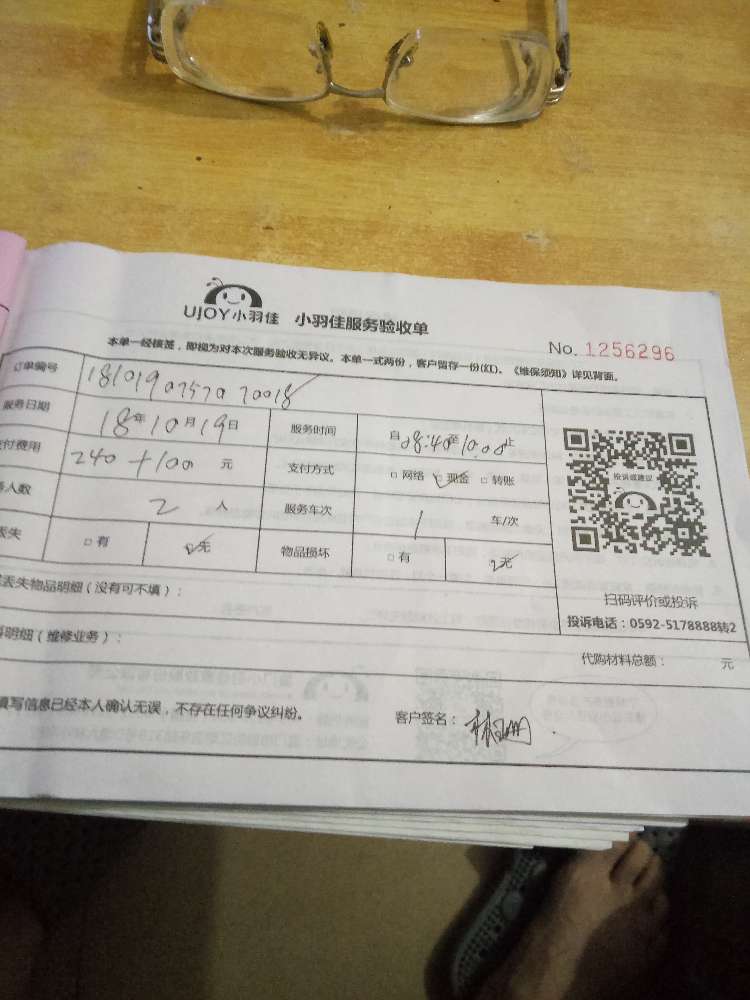 UJOY小羽佳 小羽佳服务验收单
No. 1256296
本单一经核签，即视为对本次服务验收无异议。本单一式两份，客户留存一份(红)。《维保须知》详见背面。
订单编号 18101907570 70018
服务日期 18年10月19日 服务时间 自08:40至10:00止
付费用 240+100 元 支付方式 □网络 ☑现金 □转账
人数 2 人 服务车次 1 车/次
丢失 □有 ☑无 物品损坏 □有 ☑无
投诉或建议
扫码评价或投诉
投诉电话：0592-5178888转2
丢失物品明细（没有可不填）：
明细（维修业务）： 代购材料总额： 元
填写信息已经本人确认无误，不存在任何争议纠纷。 客户签名：